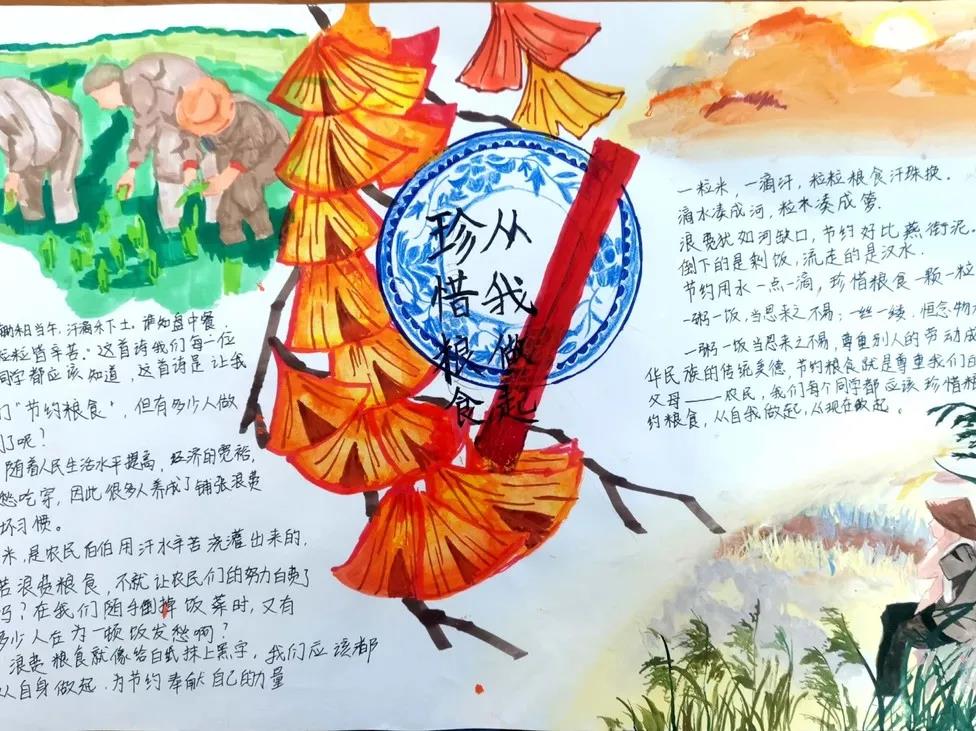 珍惜粮食
从我做起
锄禾日当午，汗滴禾下土。谁知盘中餐，
粒粒皆辛苦。这首诗我们每一位
同学都应该知道，这首诗是让我
们"节约粮食"，但有多少人做
了呢？
随着人民生活水平提高，经济的宽裕，
愁吃穿，因此很多人养成了铺张浪费
坏习惯。
米，是农民伯伯用汗水辛苦浇灌出来的，
若浪费粮食，不就让农民们的努力白费了
吗？在我们随手倒掉饭菜时，又有
多少人在为一顿饭发愁啊？
浪费粮食就像给白纸抹上黑字，我们应该都
从自身做起，为节约奉献自己的力量
一粒米，一滴汗，粒粒粮食汗珠换。
滴水凑成河，粒米凑成箩.
浪费犹如河缺口，节约好比燕衔泥。
倒下的是剩饭，流走的是汉水.
节约用水一点一滴，珍惜粮食一颗一粒
一粥一饭，当思来之不易；一丝一缕，恒念物
一粥一饭当思来之不易，尊重别人的劳动成
华民族的传统美德，节约粮食就是尊重我们自
父母——农民，我们每个同学都应该珍惜粮
约粮食，从自我做起，从现在做起。